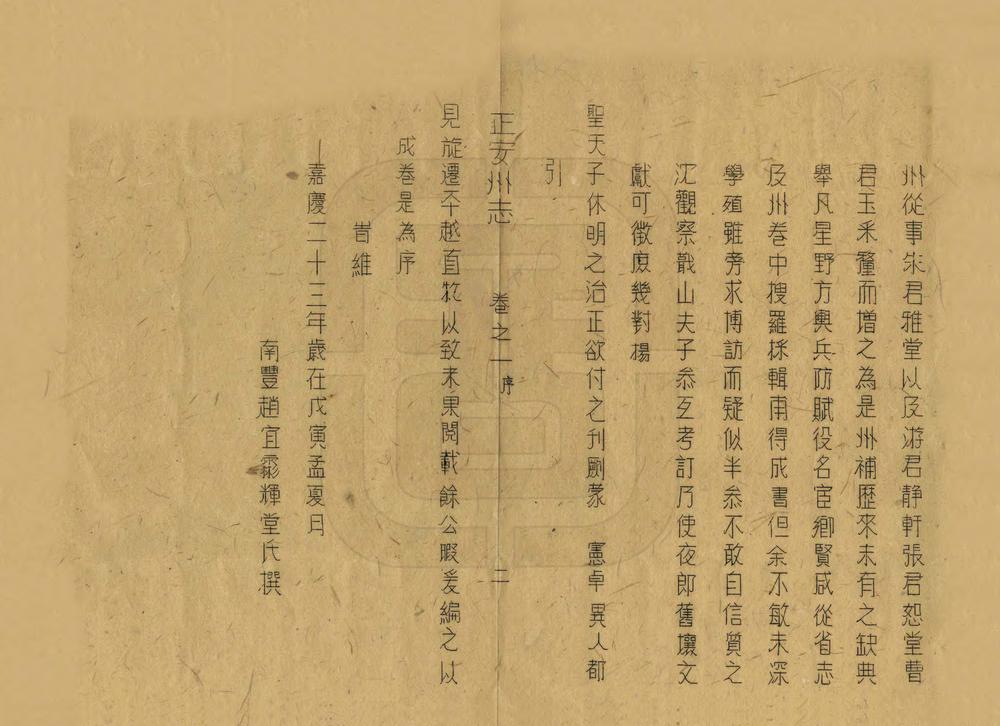 州從事朱君雅堂以及游君静軒張君恕堂曹
君玉釆釐而增之為是州補歷來未有之缺典
舉凡星野方輿兵防賦役名宦鄉賢咸從省志
及州卷中搜羅採輯甫得成書但余不敏未深
學殖雖旁求博訪而疑似半叅不敢自信質之
沈觀察戢山夫子叅互考訂乃使夜郎舊壤文
獻可徵庶幾對楊
聖天子休明之治正欲付之刋劂蒙 憲卓異人都
引
正安州志 卷之一 序 二
見旋遷夲越直牧以致未果閱載餘公暇爰編之以
成卷是為序
旹維
嘉慶二十三年歲在戊寅孟夏月
南豐趙宜霦輝堂氏撰